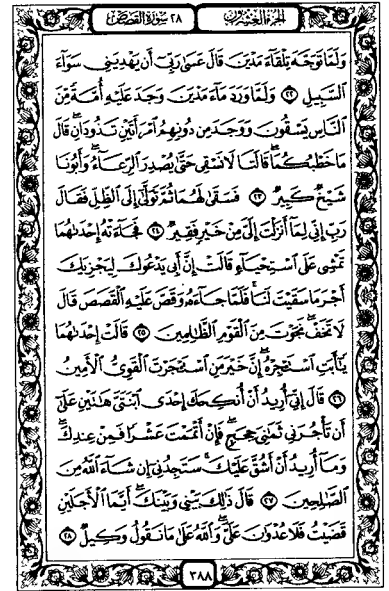 الجزء العشرون
٢٨ سورة القصص
وَلَمَّا تَوَجَّهَ تِلْقَآءَ مَدْيَنَ قَالَ عَسَىٰ رَبِّىٓ أَن يَهْدِيَنِى سَوَآءَ
ٱلسَّبِيلِ ٢٢ وَلَمَّا وَرَدَ مَآءَ مَدْيَنَ وَجَدَ عَلَيْهِ أُمَّةً مِّنَ
ٱلنَّاسِ يَسْقُونَ وَوَجَدَ مِن دُونِهِمُ ٱمْرَأَتَيْنِ تَذُودَانِ ۖ قَالَ
مَا خَطْبُكُمَا ۖ قَالَتَا لَا نَسْقِى حَتَّىٰ يُصْدِرَ ٱلرِّعَآءُ ۖ وَأَبُونَا
شَيْخٌ كَبِيرٌ ٢٣ فَسَقَىٰ لَهُمَا ثُمَّ تَوَلَّىٰٓ إِلَى ٱلظِّلِّ فَقَالَ
رَبِّ إِنِّى لِمَآ أَنزَلْتَ إِلَىَّ مِنْ خَيْرٍ فَقِيرٌ ٢٤ فَجَآءَتْهُ إِحْدَىٰهُمَا
تَمْشِى عَلَى ٱسْتِحْيَآءٍ قَالَتْ إِنَّ أَبِى يَدْعُوكَ لِيَجْزِيَكَ
أَجْرَ مَا سَقَيْتَ لَنَا ۚ فَلَمَّا جَآءَهُۥ وَقَصَّ عَلَيْهِ ٱلْقَصَصَ قَالَ
لَا تَخَفْ ۖ نَجَوْتَ مِنَ ٱلْقَوْمِ ٱلظَّٰلِمِينَ ٢٥ قَالَتْ إِحْدَىٰهُمَا
يَٰٓأَبَتِ ٱسْتَـْٔجِرْهُ ۖ إِنَّ خَيْرَ مَنِ ٱسْتَـْٔجَرْتَ ٱلْقَوِىُّ ٱلْأَمِينُ
٢٦ قَالَ إِنِّىٓ أُرِيدُ أَنْ أُنكِحَكَ إِحْدَى ٱبْنَتَىَّ هَٰتَيْنِ عَلَىٰٓ
أَن تَأْجُرَنِى ثَمَٰنِىَ حِجَجٍ ۖ فَإِنْ أَتْمَمْتَ عَشْرًا فَمِنْ عِندِكَ ۖ
وَمَآ أُرِيدُ أَنْ أَشُقَّ عَلَيْكَ ۚ سَتَجِدُنِىٓ إِن شَآءَ ٱللَّهُ مِنَ
ٱلصَّٰلِحِينَ ٢٧ قَالَ ذَٰلِكَ بَيْنِى وَبَيْنَكَ ۖ أَيَّمَا ٱلْأَجَلَيْنِ
قَضَيْتُ فَلَا عُدْوَٰنَ عَلَىَّ ۖ وَٱللَّهُ عَلَىٰ مَا نَقُولُ وَكِيلٌ ٢٨
٣٨٨